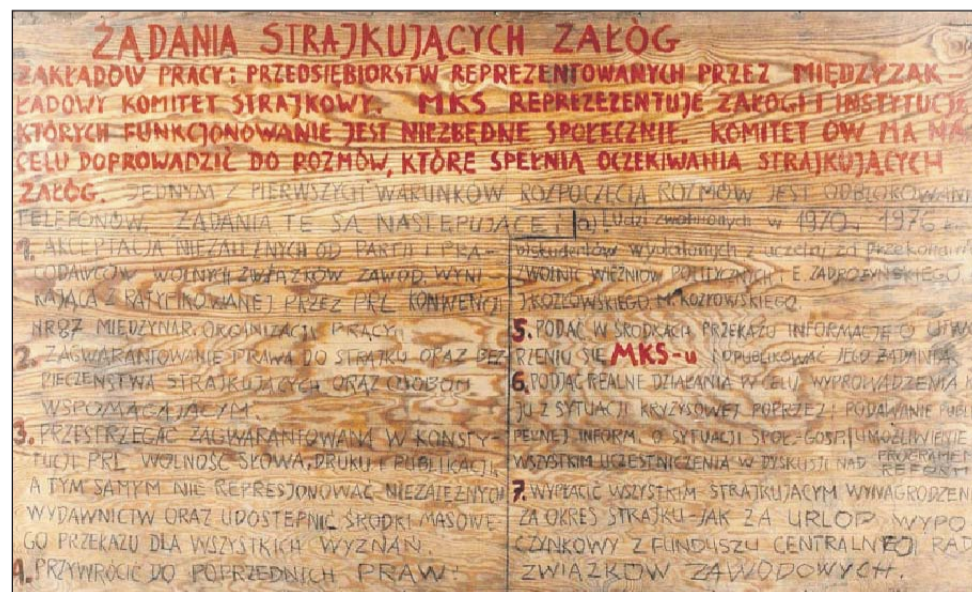 ŻĄDANIA STRAJKUJĄCYCH ZAŁÓG
ZAKŁADÓW PRACY i PRZEDSIĘBIORSTW REPREZENTOWANYCH PRZEZ MIĘDZYZAK-
ŁADOWY KOMITET STRAJKOWY. MKS REPREZEZENTUJE ZAŁOGI I INSTYTUCJE
KTÓRYCH FUNKCJONOWANIE JEST NIEZBĘDNE SPOŁECZNIE. KOMITET ÓW MA NA
CELU DOPROWADZIĆ DO ROZMÓW, KTÓRE SPEŁNIĄ OCZEKIWANIA STRAJKUJĄCYCH
ZAŁÓG. JEDNYM Z PIERWSZYCH WARUNKÓW ROZPOCZĘCIA ROZMÓW JEST ODBLOKOWANI
TELEFONÓW. ŻĄDANIA TE SĄ NASTĘPUJĄCE:
1. AKCEPTACJA NIEZALEŻNYCH OD PARTII I PRA-
CODAWCÓW WOLNYCH ZWIĄZKÓW ZAWOD. WYNI
KAJĄCA Z RATYFIKOWANEJ PRZEZ PRL KONWENCJI
NR 87 MIĘDZYNAR. ORGANIZACJI PRACY.
2. ZAGWARANTOWANIE PRAWA DO STRAJKU ORAZ BEZ
PIECZEŃSTWA STRAJKUJĄCYCH ORAZ OSOBOM
WSPOMAGAJĄCYM.
3. PRZESTRZEGAĆ ZAGWARANTOWANĄ W KONSTY-
TUCJI PRL WOLNOŚĆ SŁOWA, DRUKU I PUBLIKACJI,
A TYM SAMYM NIE REPRESJONOWAĆ NIEZALEŻNYCH
WYDAWNICTW ORAZ UDOSTĘPNIĆ ŚRODKI MASOWE-
GO PRZEKAZU DLA WSZYSTKICH WYZNAŃ.
4. PRZYWRÓCIĆ DO POPRZEDNICH PRAW:
a) Ludzi zwolnionych w 1970 1976
b) studentów wydalonych z uczelni za przekonan
ZWOLNIĆ WIĘŹNIÓW POLITYCZNYCH i E. ZADROŻYŃSKIEGO
J. KOZŁOWSKIEGO M. KOZŁOWSKIEGO
5. PODAĆ W ŚRODKACH PRZEKAZU INFORMACJĘ O UTWO
RZENIU SIĘ MKS-u I OPUBLIKOWAĆ JEGO ŻĄDANIA
6. PODJĄĆ REALNE DZIAŁANIA W CELU WYPROWADZENIA
JU Z SYTUACJI KRYZYSOWEJ POPRZEZ: PODAWANIE PUBL
PEŁNEJ INFORM. O SYTUACJI SPOŁ.-GOSP. UMOŻLIWIENIE
WSZYSTKIM UCZESTNICZENIA W DYSKUSJI NAD PROGRAMEM
REFORM
7. WYPŁACIĆ WSZYSTKIM STRAJKUJĄCYM WYNAGRODZEN
ZA OKRES STRAJKU-JAK ZA URLOP WYPO
CZYNKOWY Z FUNDUSZU CENTRALNEJ RAD
ZWIĄZKÓW ZAWODOWYCH.